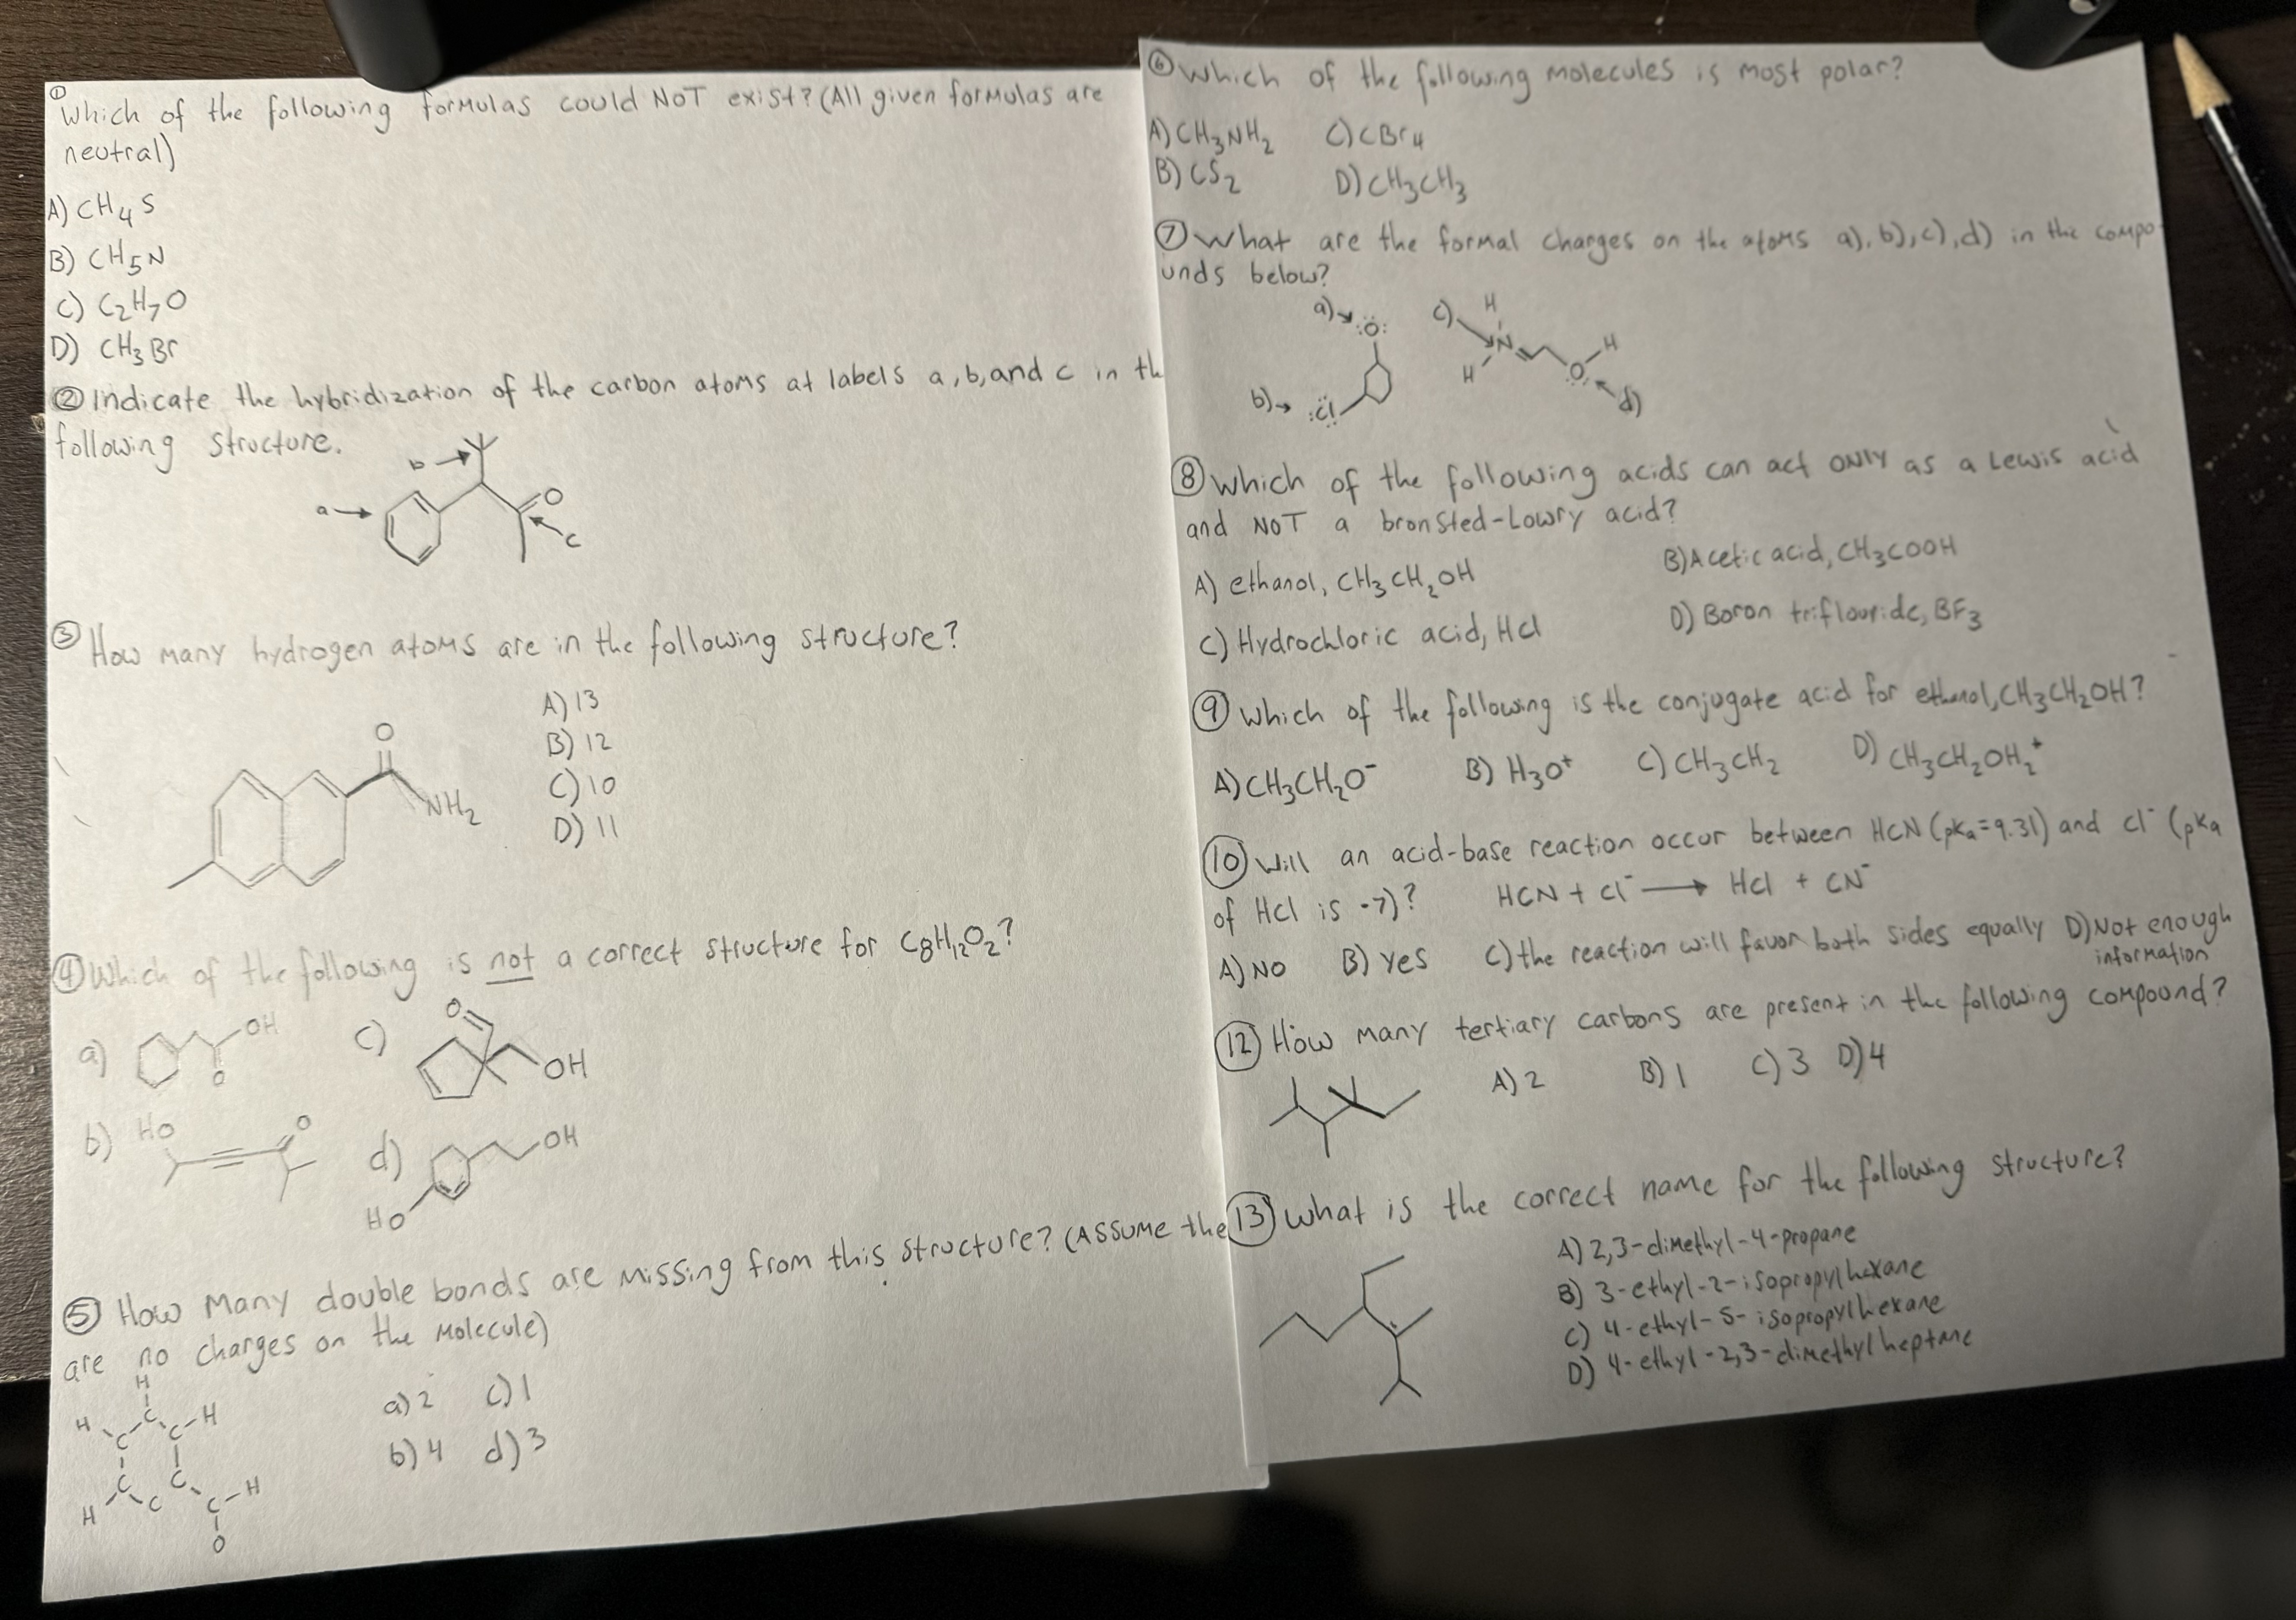 ① Which of the following formulas could NOT exist? (All given formulas are
neutral)
A) CH₄S
B) CH₅N
C) C₂H₇O
D) CH₃Br
② Indicate the hybridization of the carbon atoms at labels a, b, and c in th
following structure.
b
a
O
c
③ How many hydrogen atoms are in the following structure?
A) 13
B) 12
C) 10
D) 11
O
NH₂
④ Which of the following is not a correct structure for C₈H₁₂O₂?
a) OH
O
c) O
OH
b) HO
O
d) OH
HO
⑤ How many double bonds are missing from this structure? (Assume the
are no charges on the molecule)
a) 2 c) 1
b) 4 d) 3
H
H C C C H
C C
H C C H
O
⑥ Which of the following molecules is most polar?
A) CH₃NH₂ C) CBr₄
B) CS₂ D) CH₃CH₃
⑦ What are the formal charges on the atoms a), b), c), d) in the compo-
unds below?
a) :Ö:
b) :Cl
c) H
N
H
O H
d)
⑧ Which of the following acids can act ONLY as a Lewis acid
and NOT a bronsted-Lowry acid?
A) ethanol, CH₃CH₂OH B) Acetic acid, CH₃COOH
C) Hydrochloric acid, HCl D) Boron triflouride, BF₃
⑨ Which of the following is the conjugate acid for ethanol, CH₃CH₂OH?
A) CH₃CH₂O⁻ B) H₃O⁺ C) CH₃CH₂ D) CH₃CH₂OH₂⁺
⑩ Will an acid-base reaction occur between HCN (pKa=9.31) and Cl⁻ (pKa
of HCl is -7)? HCN + Cl⁻ → HCl + CN⁻
A) NO B) Yes C) the reaction will favor both sides equally D) Not enough
information
⑫ How many tertiary carbons are present in the following compound?
A) 2 B) 1 C) 3 D) 4
⑬ What is the correct name for the following structure?
A) 2,3-dimethyl-4-propane
B) 3-ethyl-2-isopropylhexane
C) 4-ethyl-5-isopropylhexane
D) 4-ethyl-2,3-dimethylheptane